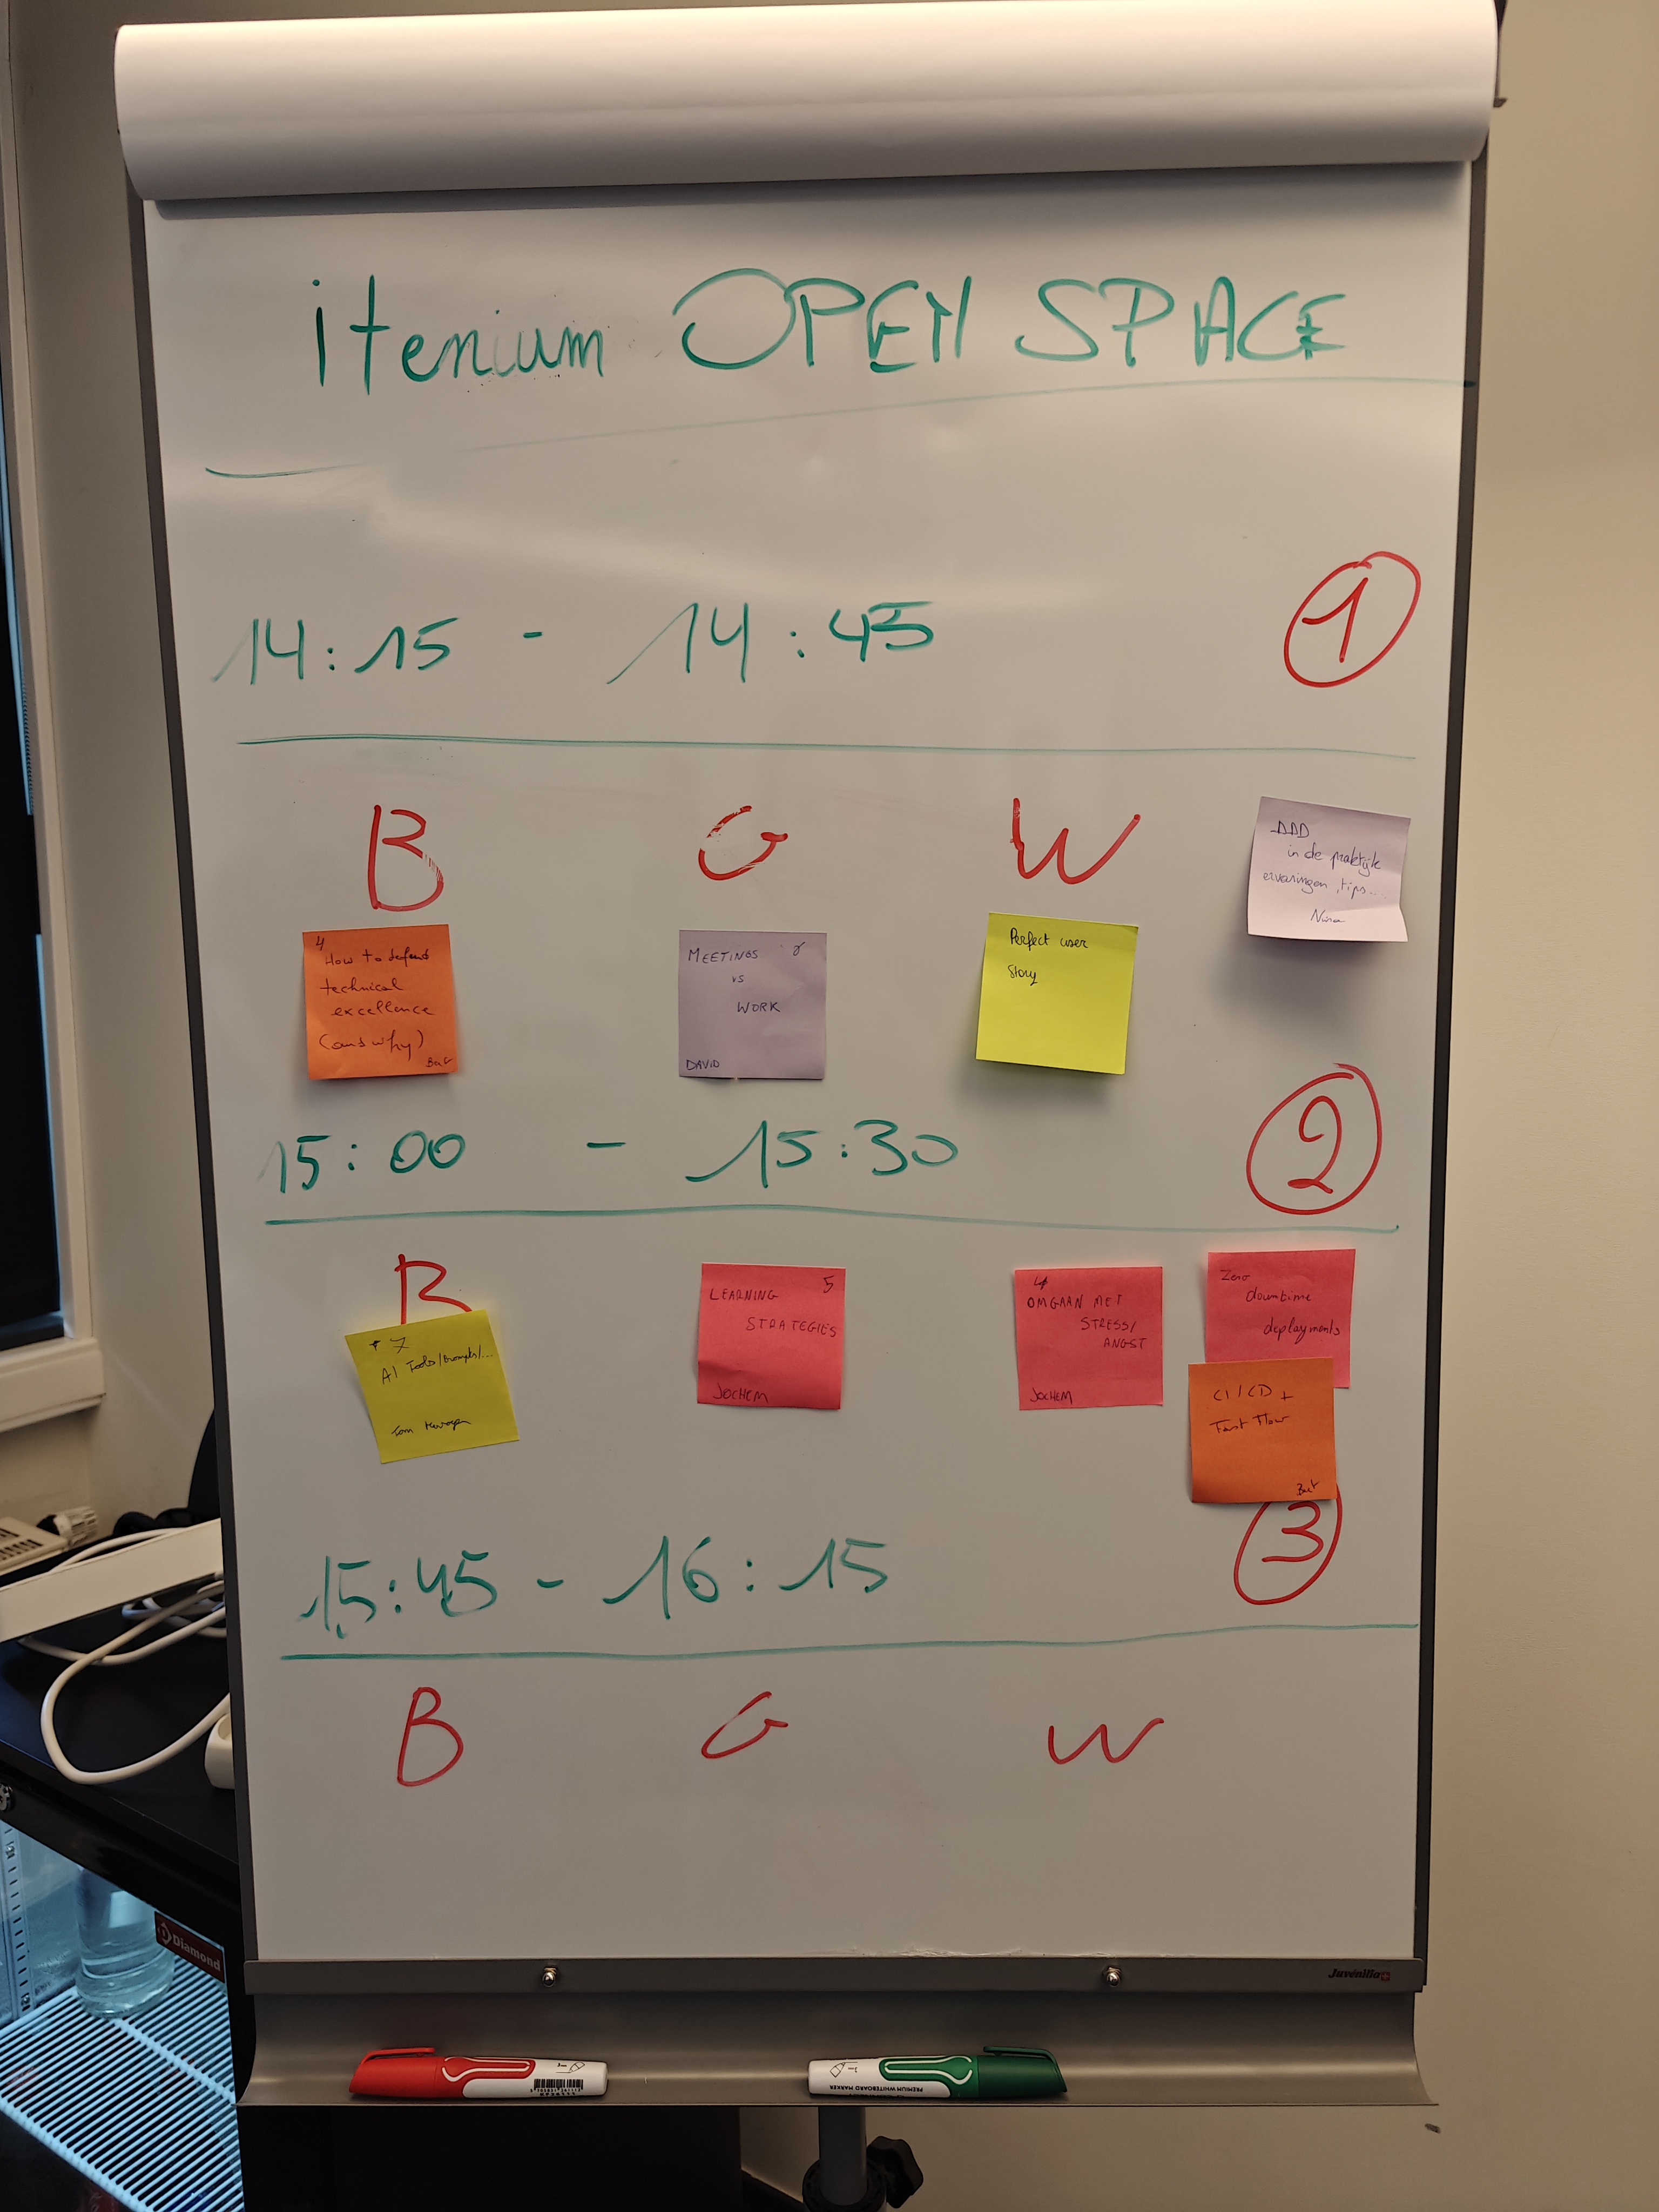 itenium OPEN SPACE
14:15 - 14:45
1
B G W
DDD
in de praktijk
ervaringen, tips...
Nina
4
How to defend
technical
excellence
(and why)
Bart
MEETINGS
vs
WORK
DAVID
Perfect user
Story
15:00 - 15:30
2
B
7
AI Tools/Prompts/...
Tom
LEARNING 5
STRATEGIES
JOCHEM
4
OMGAAN MET
STRESS/
ANGST
JOCHEM
Zero
downtime
deployments
CI/CD +
Fast Flow
Bart
15:45 - 16:15
3
B G W
Diamond
Juvenilia
PREMIUM WHITEBOARD MARKER